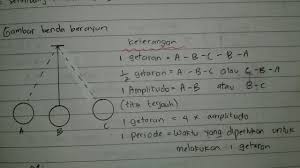 Gambar benda berayun
keterangan
1 getaran = A - B - C - B - A
1/2 getaran = A - B - C atau C - B - A
1 Amplitudo = A - B atau B - C
(titik terjauh)
1 getaran = 4 x amplitudo
1 periode = waktu yang diperlukan untuk
melakukan 1 getaran
A B C